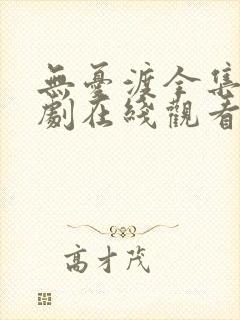 無憂渡全集
劇在綫觀看
高才茂